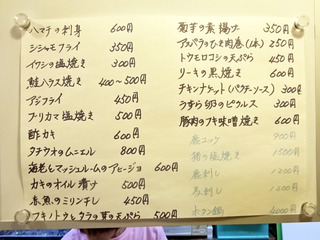 ハマチの刺身 600円
シシャモフライ 350円
イワシの塩焼き 300円
鮭ハラス焼き 400〜500円
アジフライ 450円
ブリカマ塩焼き 500円
酢カキ 600円
タチウオのムニエル 800円
海老とマッシュルームのアヒージョ 600円
カキのオイル漬け 500円
春魚のミリンチし 450円
フキノトウとタラの芽の天ぷら 500円
菊芋の素揚げ 350円
アスパラのひき肉巻(1本) 250円
トウモロコシの天ぷら 450円
リーキの黒焼き 600円
チキンナゲット(バクチーソース) 300円
うずら卵のピクルス 300円
豚肉のフキ味噌焼き 600円
鹿ユッケ 900円
猪の塩焼き 1500円
鹿刺し 1200円
馬刺し 1200円
ボタン鍋 4000円